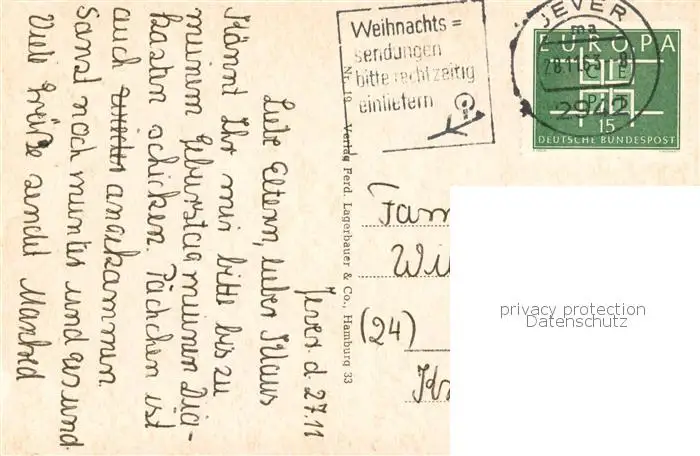 Jever d. 27.11
Liebe Eltern, lieber Klaus
Könnt Ihr mir bitte bis zu
meinem Geburstag meinen Dia-
kasten schicken. Päckchen ist
auch angekommen
Sonst noch munter und gesund
Viele Grüße sendet Manfred
Nr. 19 Verlag Ferd. Lagerbauer & Co., Hamburg 33
Weihnachts=
sendungen
bitte rechtzeitig
einliefern
JEVER
ma
28.11.63.-8
2942
EUROPA
CEPT
15
DEUTSCHE BUNDESPOST
Fam
Wi
(24)
privacy protection
Datenschutz